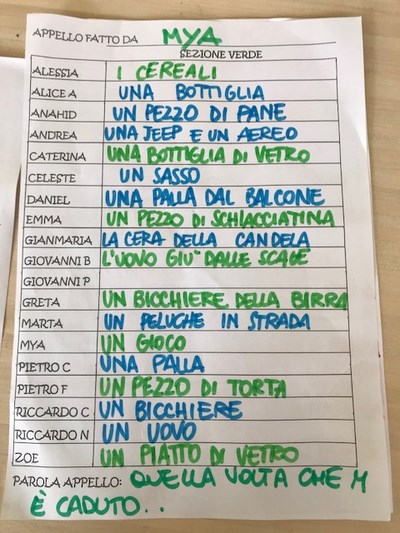 APPELLO FATTO DA MYA
SEZIONE VERDE
ALESSIA I CEREALI
ALICE A UNA BOTTIGLIA
ANAHID UN PEZZO DI PANE
ANDREA UNA JEEP E UN AEREO
CATERINA UNA BOTTIGLIA DI VETRO
CELESTE UN SASSO
DANIEL UNA PALLA DAL BALCONE
EMMA UN PEZZO DI SCHIACCIATINA
GIANMARIA LA CERA DELLA CANDELA
GIOVANNI B L'UOVO GIU' DALLE SCALE
GIOVANNI P
GRETA UN BICCHIERE DELLA BIRRA
MARTA UN PELUCHE IN STRADA
MYA UN GIOCO
PIETRO C UNA PALLA
PIETRO F UN PEZZO DI TORTA
RICCARDO C UN BICCHIERE
RICCARDO N UN UOVO
ZOE UN PIATTO DI VETRO
PAROLA APPELLO: QUELLA VOLTA CHE M
È CADUTO..